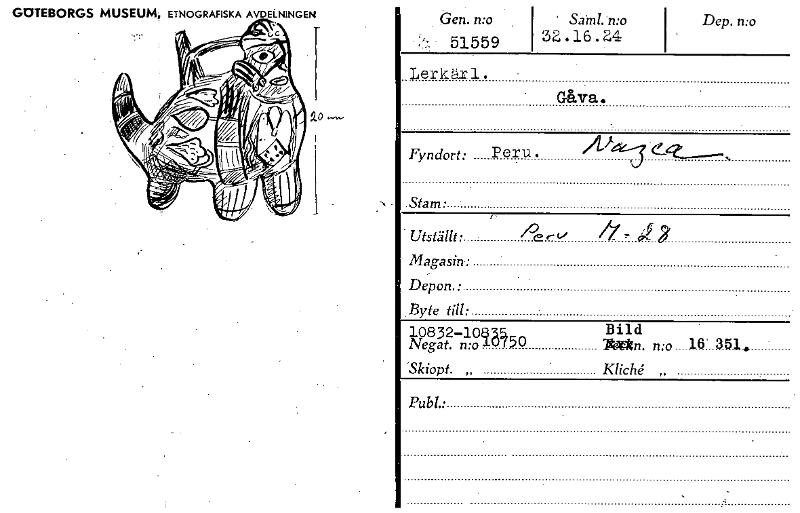 GÖTEBORGS MUSEUM, ETNOGRAFISKA AVDELNINGEN
20 cm
Gen. n:o Saml. n:o Dep. n:o
51559 32.16.24
Lerkärl.
Gåva.
Fyndort: Peru. Nazca.
Stam:
Utställt: Peru M-28
Magasin:
Depon.:
Byte till:
10832-10835 Bild
Negat. n:o 10750 n:o 16 351.
Skiopt. „ Kliché „
Publ.: